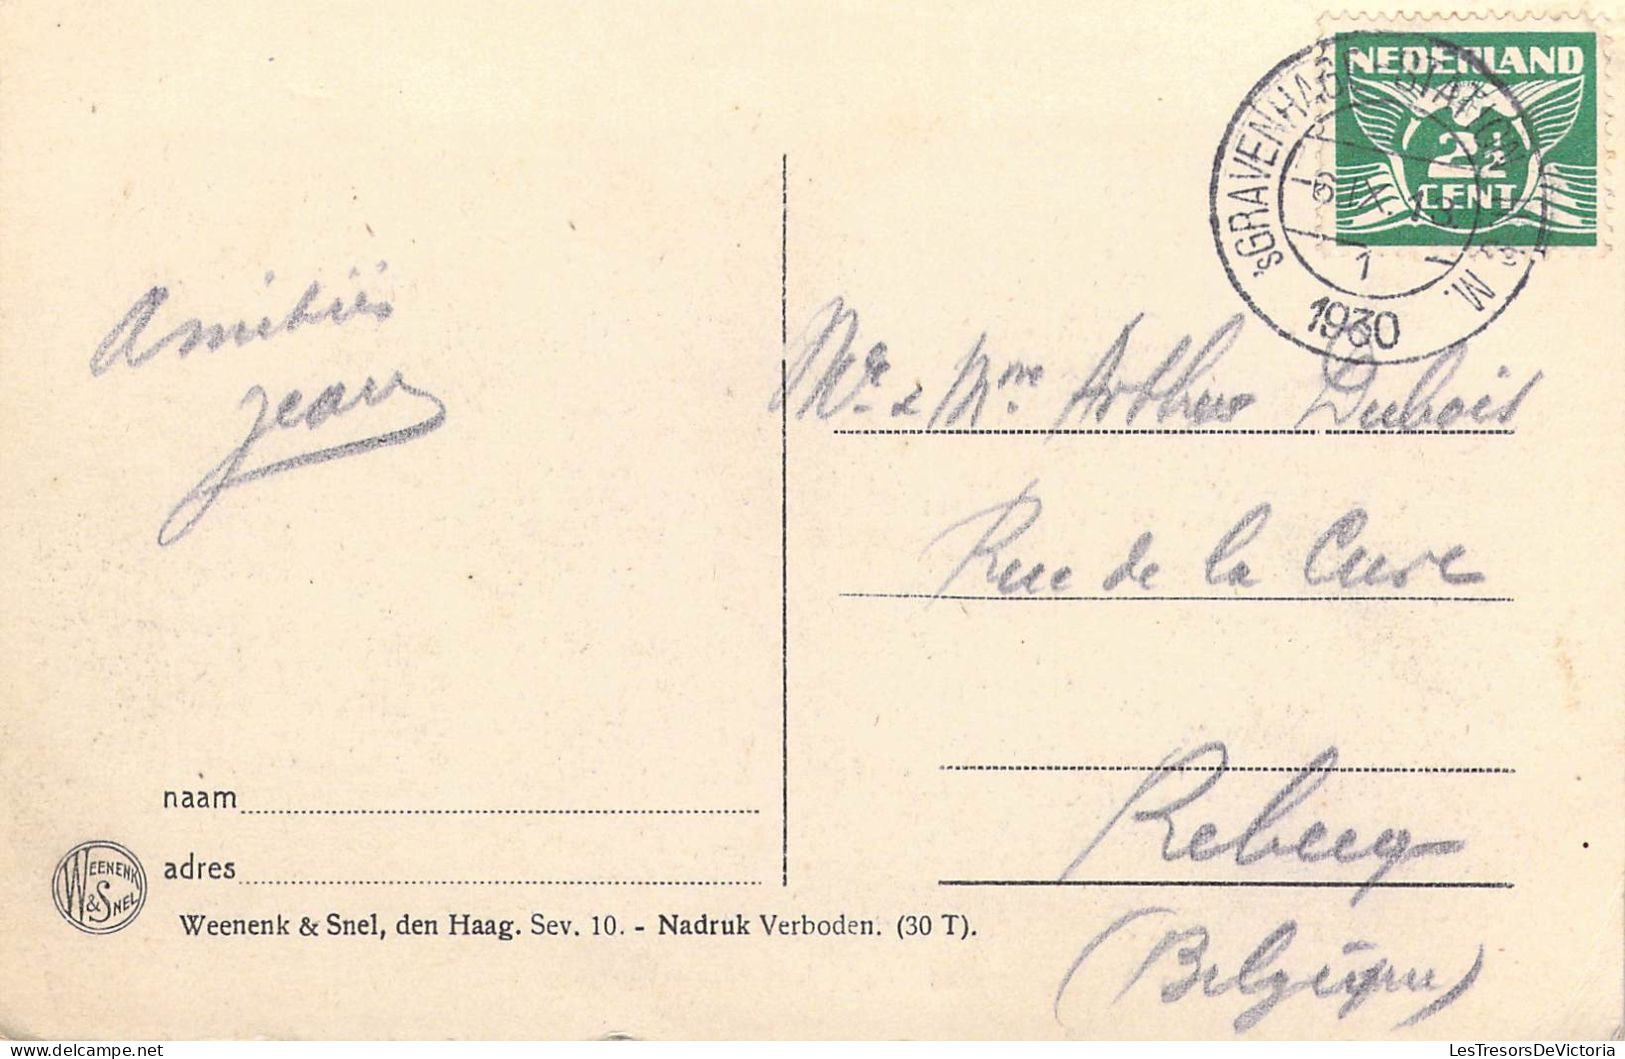 NEDERLAND
2½
CENT
'sGRAVENHAGE-STATION
6 IX. 13
1
1930
Amitiés
Jean
Mr & Mme Arthur Dubois
Rue de la Cure
Rebecq
(Belgique)
naam
adres
WEENENK
& SNEL
Weenenk & Snel, den Haag. Sev. 10. - Nadruk Verboden. (30 T).
LesTresorsDeVictoria